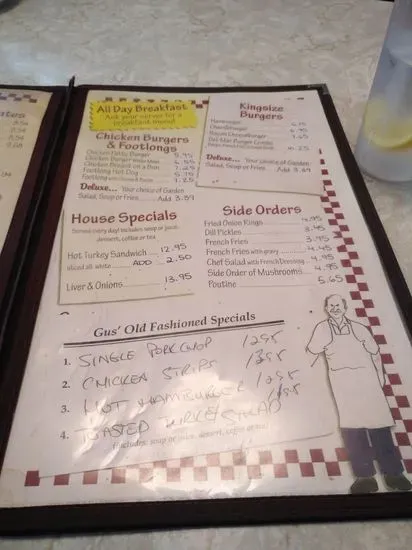 All Day Breakfast
Ask your server for a
breakfast menu!
Chicken Burgers
& Footlongs
Chicken Patty Burger 5.95
Chicken Burger 6.55
Chicken Breast on a Bun 7.25
Footlong Hot Dog 5.75
Footlong 7.25
Deluxe... Your choice of Garden
Salad, Soup or Fries... Add 3.89
Kingsize
Burgers
Hamburger 6.15
Cheeseburger 6.95
Bacon Cheeseburger 7.65
10.25
Deluxe... Your choice of Garden
Salad, Soup or Fries... Add 3.89
House Specials
Served every day! Includes soup or juice,
dessert, coffee or tea
Hot Turkey Sandwich 12.95
sliced all white ADD 2.50
Liver & Onions 13.95
Side Orders
Fried Onion Rings 4.95
Dill Pickles 3.45
French Fries 3.95
French Fries with gravy 4.45
Chef Salad with French Dressing 4.95
Side Order of Mushrooms 4.95
Poutine 5.65
Gus' Old Fashioned Specials
1. SINGLE PORKCHOP 1295
2. CHICKEN STRIPS 1395
3. HOT HAMBURGER 1295
4. TOASTED TURKEY SALAD
(Includes: soup or juice, dessert, coffee or tea)